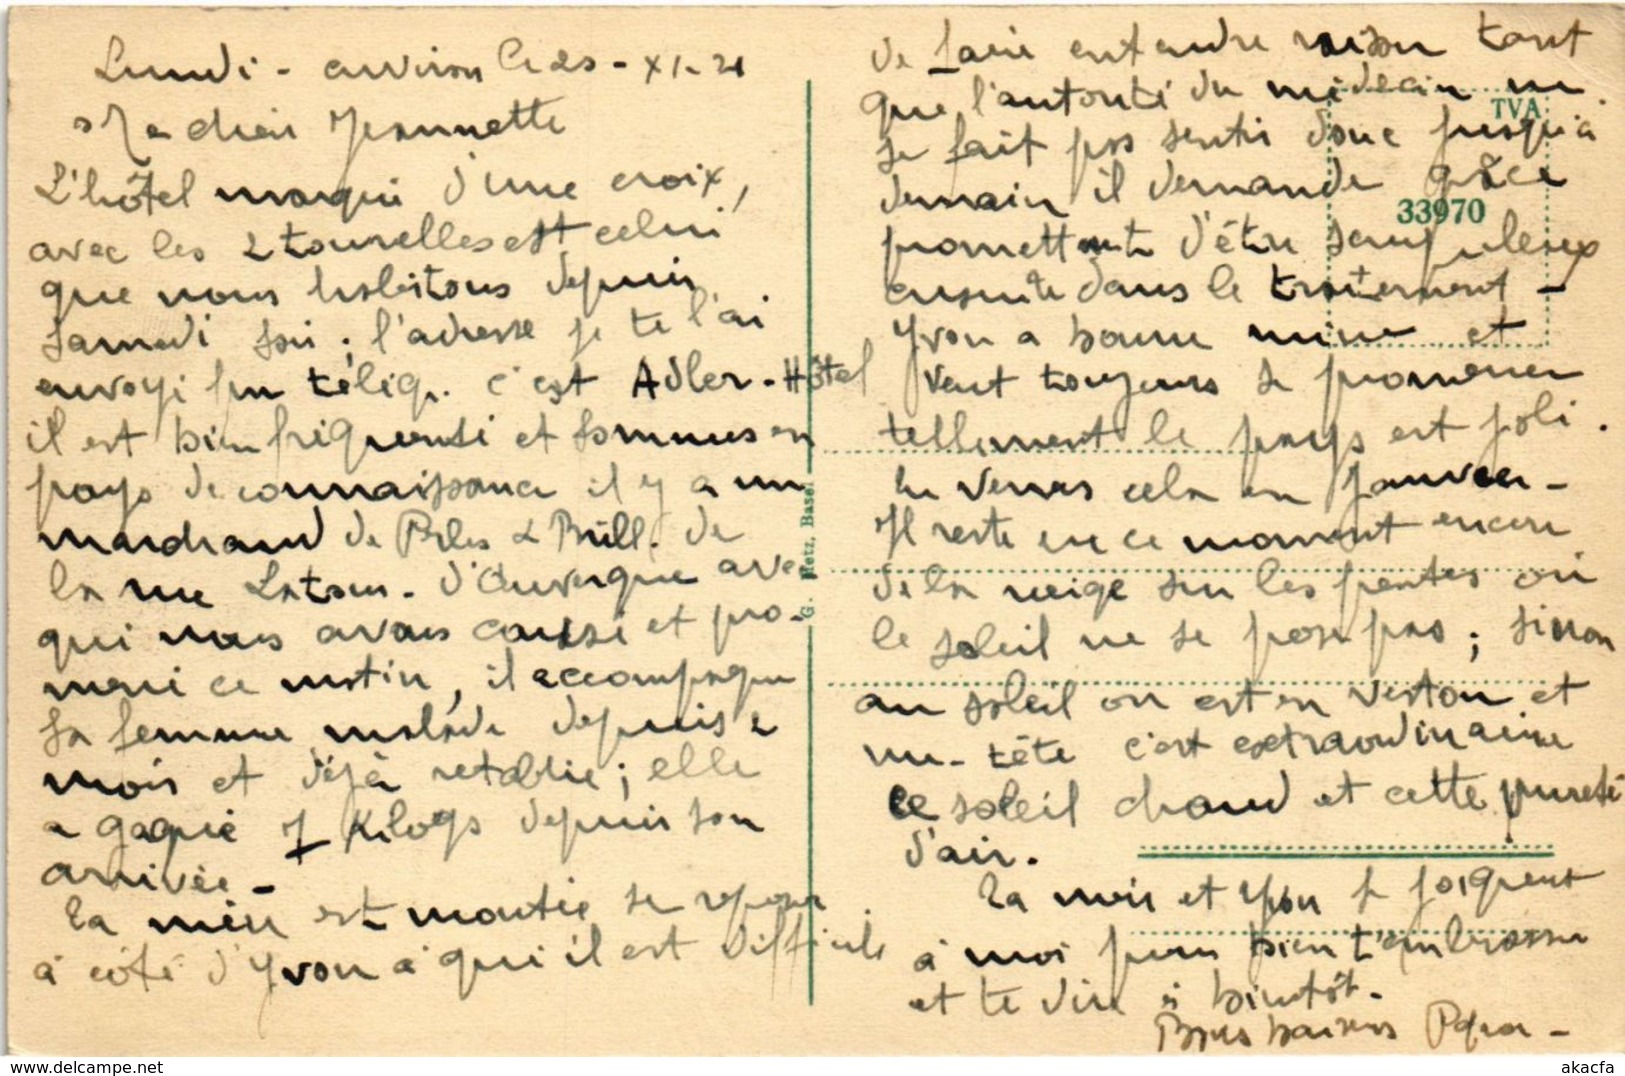 Lundi - environ - XI - 21
Ma chère Jeannette
L'hôtel marqué d'une croix,
avec les 2 tourelles est celui
que nous habitons depuis
samedi soir ; l'adresse je te l'ai
envoyé par télég. c'est Adler-Hôtel
il est bien fréquenté et sommes en
pays de connaissance il y a un
marchand de & Brill. de
la rue Latour-d'Auvergne avec
qui nous avons causé et pro-
mené ce matin, il accompagne
sa femme malade depuis 2
mois et déjà rétablie ; elle
a gagné 7 Kilogs depuis son
arrivée -
Ta mère est montée se reposer
à côté d'Yvon à qui il est difficile
de faire entendre raison tant
que l'autorité du médecin ne
se fait pas sentir donc jusqu'à
demain il demande grâce
promettant d'être scrupuleux
ensuite dans le traitement -
Yvon a bonne mine et
veut toujours se promener
tellement le pays est joli.
tu verras cela en Janvier -
Il reste en ce moment encore
de la neige sur les pentes où
le soleil ne se pose pas ; sinon
au soleil on est en veston et
nu-tête c'est extraordinaire
ce soleil chaud et cette pureté
d'air.
Ta mère et Yvon se joignent
à moi pour bien t'embrasser
et te dire à bientôt -
Bons baisers Papa -
TVA
33970
G. Metz, Basel
akacfa